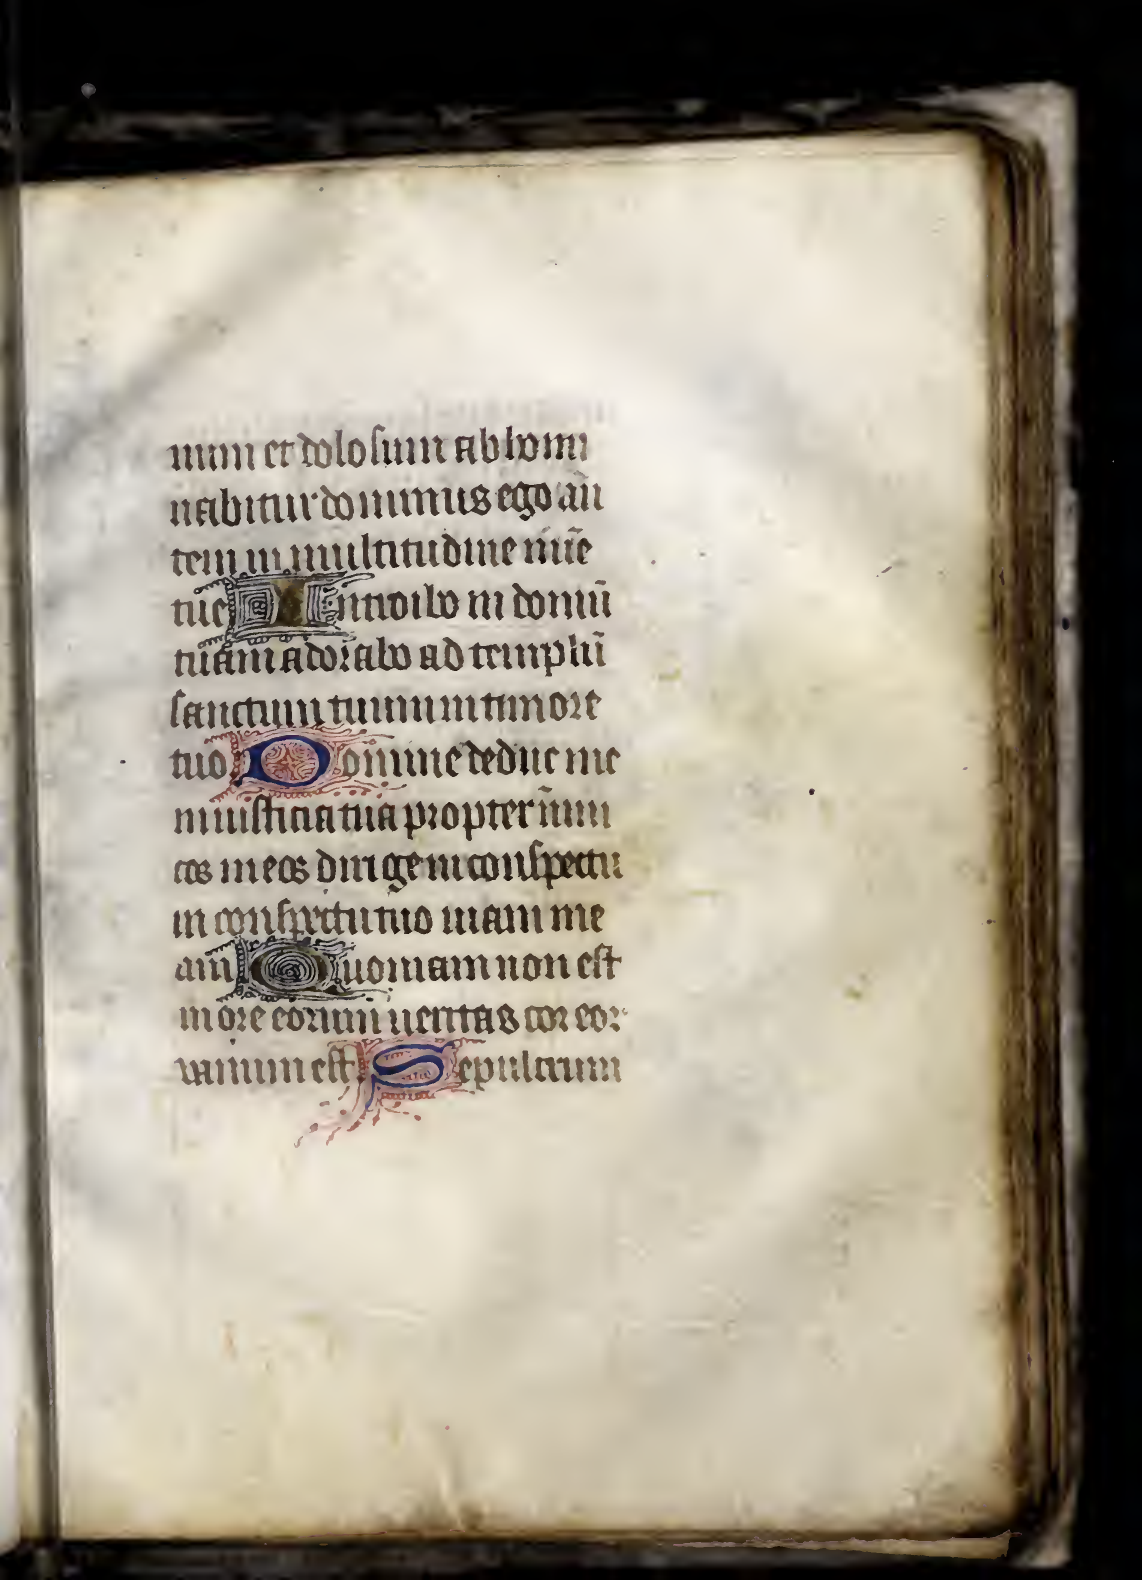 num et dolosum abhomi
nabitur dominus ego aū
tem in multitudine mīe
tue Introibo in domū
tuam adorabo ad templū
sanctum tuum in timore
tuo Domine deduc me
in iusticia tua propter inimi
cos meos dirige in conspectu
in conspectu tuo uiam me
am Quoniam non est
in ore eorum ueritas cor eor
uanum est Sepulcrum